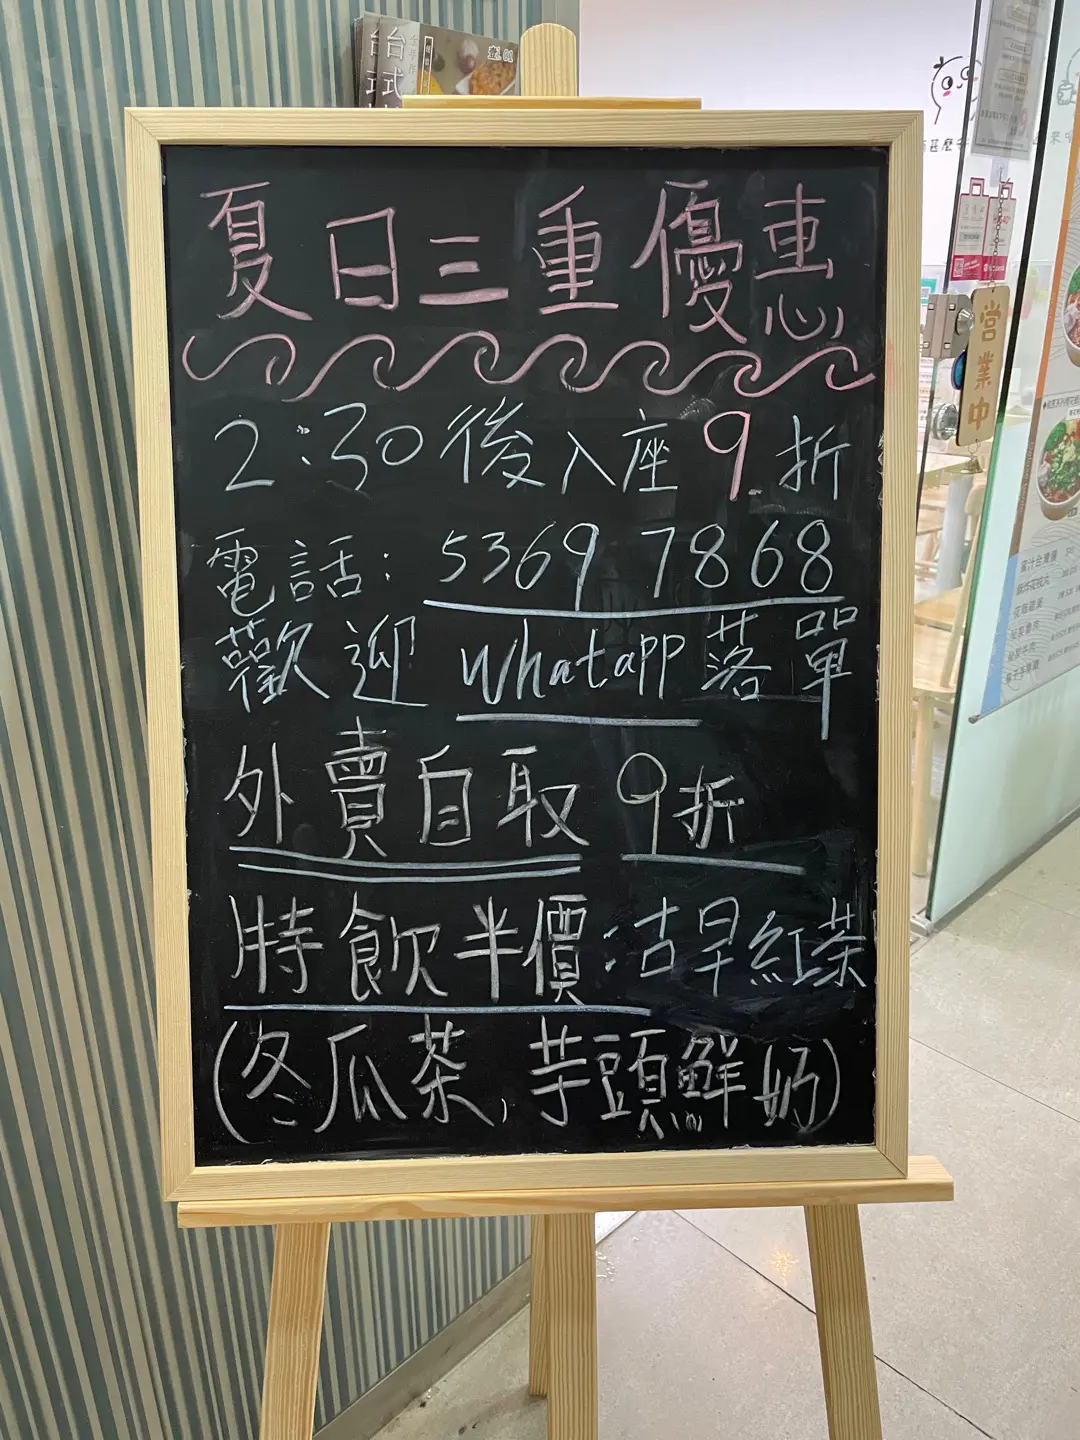 台式
壹.01
夏日三重優惠
2:30後入座9折
電話: 5369 7868
歡迎 Whatapp 落單
外賣自取 9折
特飲半價:古早紅茶
(冬瓜茶, 芋頭鮮奶)
營業中